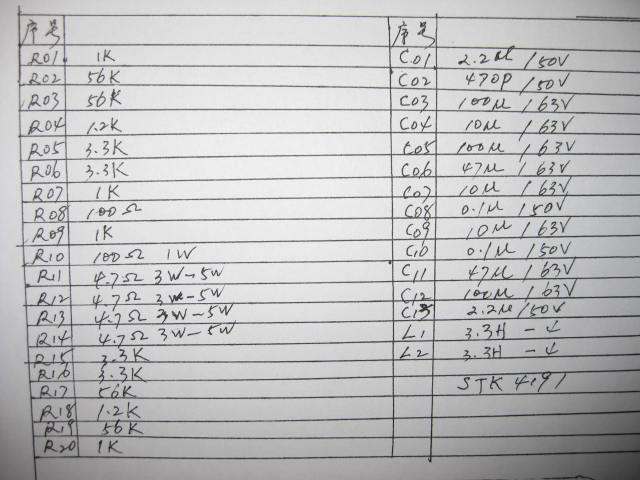 序号
R01 1K
R02 56K
R03 56K
R04 1.2K
R05 3.3K
R06 3.3K
R07 1K
R08 100Ω
R09 1K
R10 100Ω 1W
R11 4.7Ω 3W-5W
R12 4.7Ω 3W-5W
R13 4.7Ω 3W-5W
R14 4.7Ω 3W-5W
R15 3.3K
R16 3.3K
R17 56K
R18 1.2K
R19 56K
R20 1K
序号
C01 2.2μ /50V
C02 470P /50V
C03 100μ /63V
C04 10μ /63V
C05 100μ /63V
C06 47μ /63V
C07 10μ /63V
C08 0.1μ /50V
C09 10μ /63V
C10 0.1μ /50V
C11 47μ /63V
C12 100μ /63V
C13 2.2μ /50V
L1 3.3H -
L2 3.3H -
STK 4191